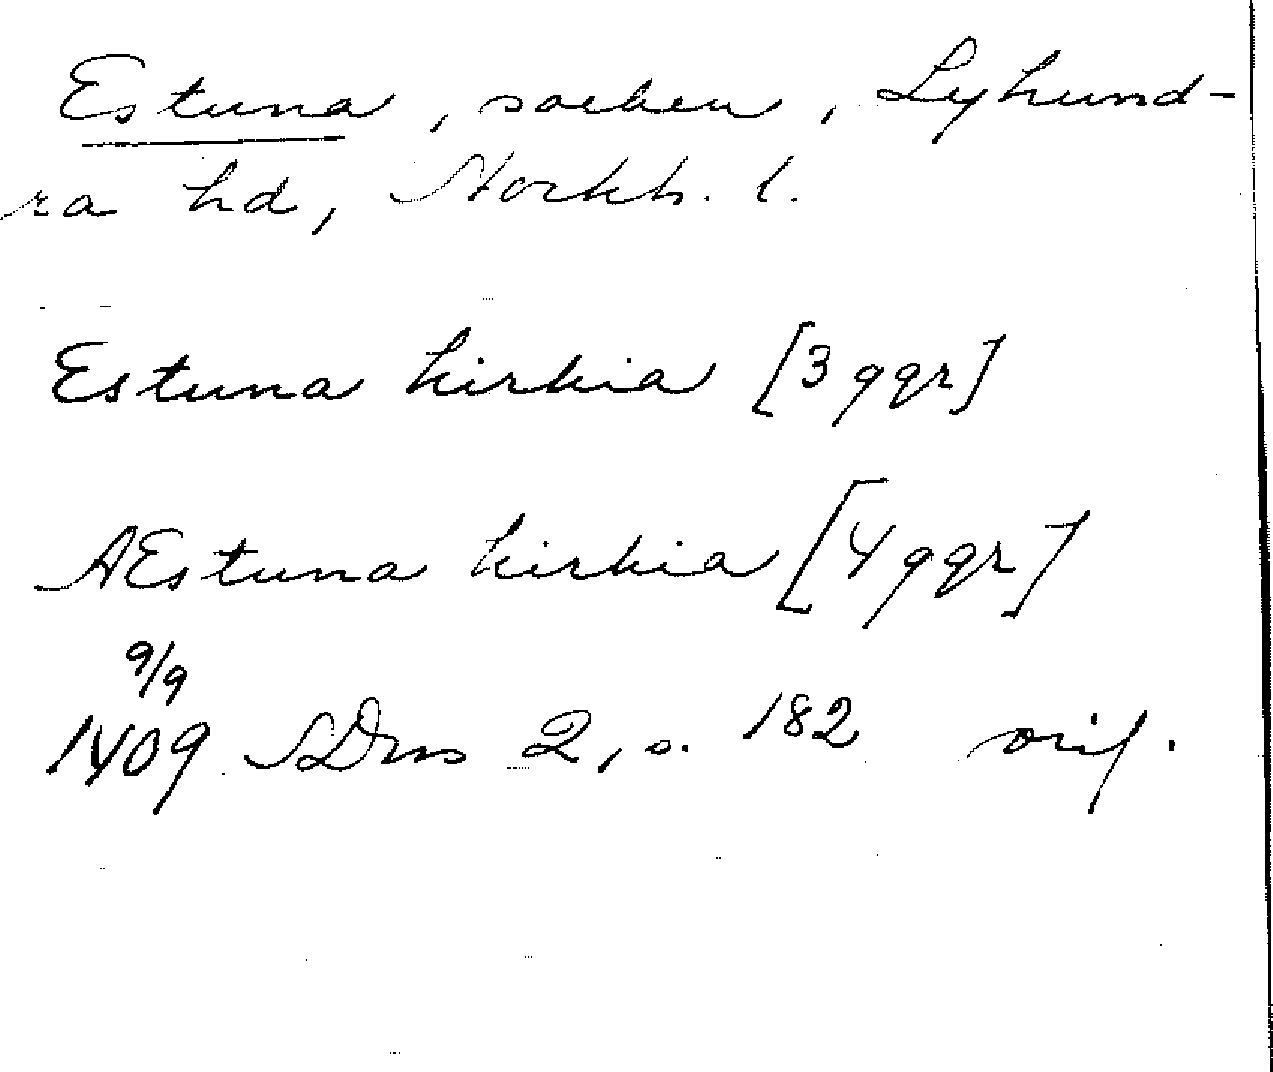 Estuna, socken, Lyhund-
ra hd, Stockh. l.
Estuna kirkia [3 ggr]
AEstuna kirkia [4 ggr]
9/9
1409 SDns 2, s. 182 orig.